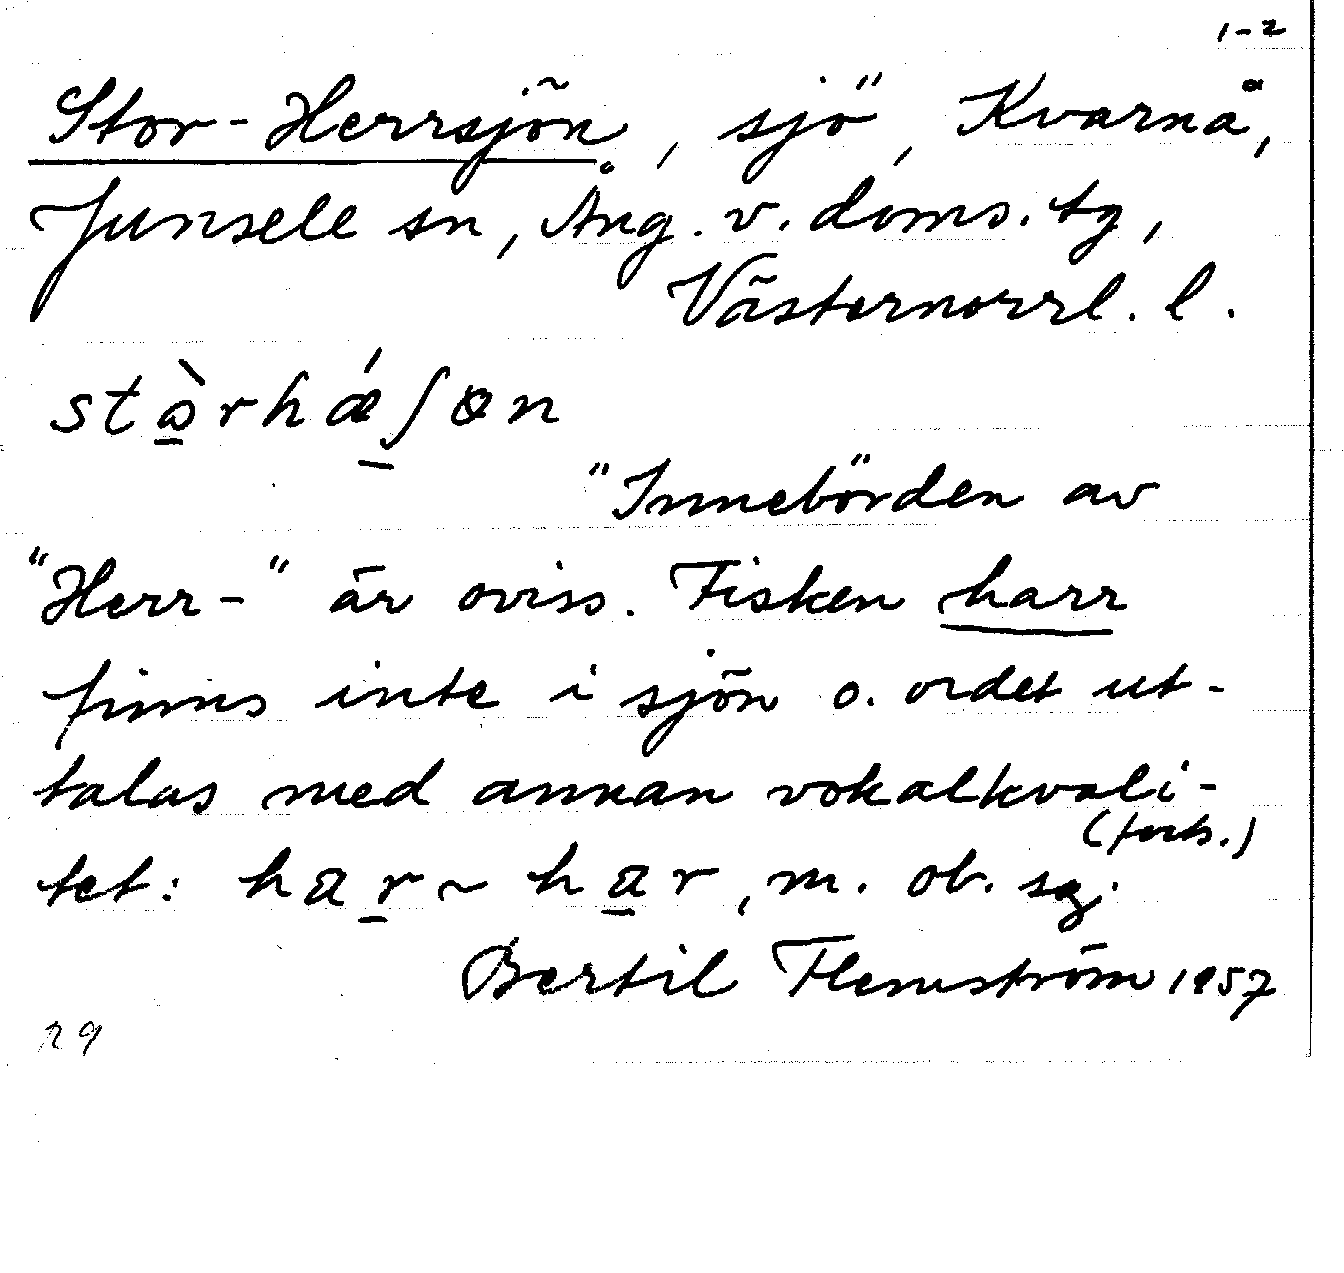 1-2
Stor-Herrsjön, sjö, Kvarnå,
Junsele sn, Ång. v. doms. tg,
Västernorrl. l.
"Innebörden av
"Herr-" är oviss. Fisken harr
finns inte i sjön o. ordet ut-
talas med annan vokalkvali-
(forts.)
tet: har ~ har, m. ob. sg.
Bertil Flemström 1957
29